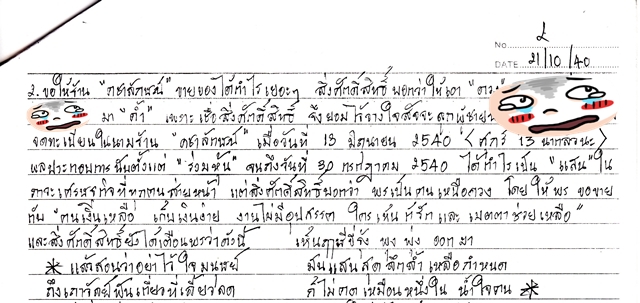 No. 2
DATE 21/10/40
2. ขอให้ร้าน "คชาลักษณ์" ขายของได้กำไรเยอะๆ สิ่งศักดิ์สิทธิ์ บอกว่าให้เอา
มา "ค้ำ" เพราะ เชื่อ สิ่งศักดิ์สิทธิ์ จึงยอมไว้วางใจ ลูกผู้ชาย
จดทะเบียนในนามร้าน "คชาลักษณ์" เมื่อวันที่ 13 มิถุนายน 2540 (ศุกร์ 13
ผลประกอบการ นับตั้งแต่ "ร่วมหุ้น" จนถึงวันที่ 30 กรกฎาคม 2540 ได้กำไรเป็น "แสน" ใน
ภาวะเศรษฐกิจที่ทุกคนส่ายหน้า แต่สิ่งศักดิ์สิทธิ์บอกว่า พรเป็นคนเหนือดวง โดยให้พร ขอขาย
กับ "คนเงินเหลือ เก็บเงินง่าย งานไม่มีอุปสรรค ใครเห็นก็รัก และ เมตตาช่วยเหลือ"
และสิ่งศักดิ์สิทธิ์ยังได้เตือนพรว่าดังนี้ ออก มา
* แล้วสอนว่าอย่าไว้ใจมนุษย์ มันแสนสุดลึกล้ำเหลือกำหนด
ถึงเถาวัลย์พันเกี่ยวที่เลี้ยวลด ก็ไม่คดเหมือนหนึ่งใน น้ำใจคน *